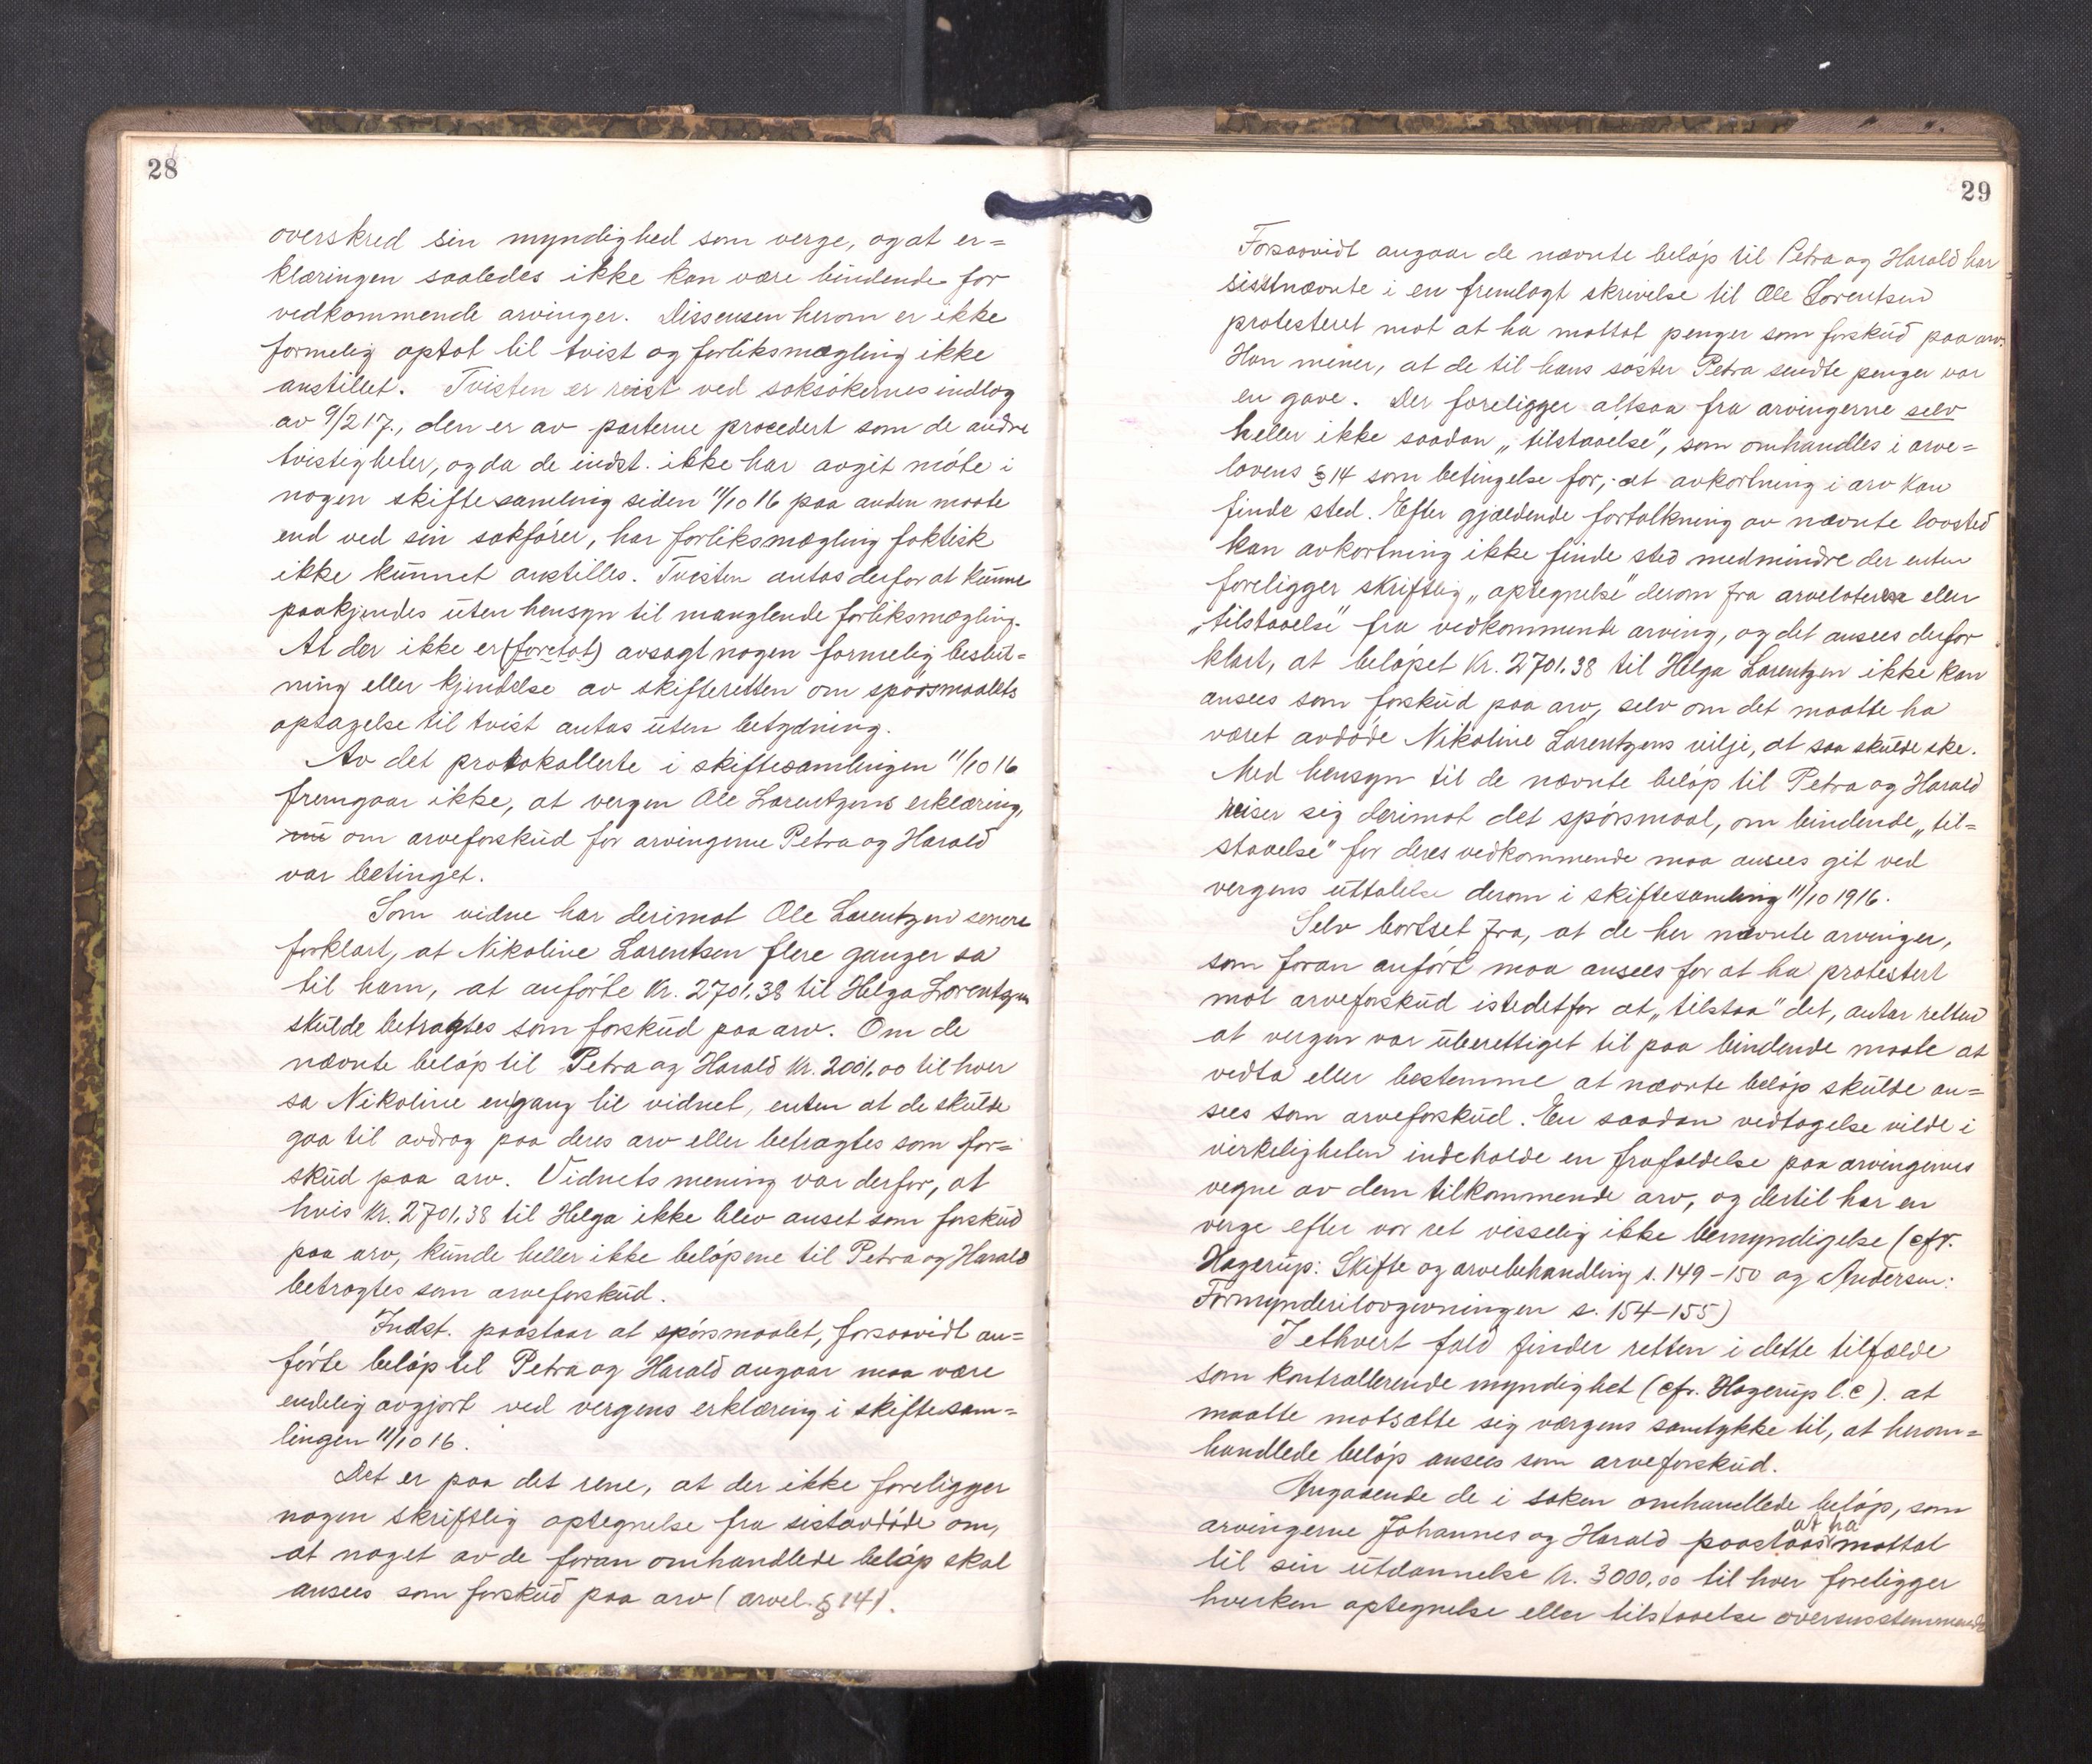 28
overskred sin myndighed som verge, og at er=
klæringen saaledes ikke kan være bindende for
vedkommende arvinger. Dissensen herom er ikke
formelig optat til tvist og forliksmægling ikke
anstillet. Tvisten er reist ved saksökernes indlæg
av 9/2 17., den er av parterne procedert som de andre
tvistigheter, og da de indst. ikke har avgit möte i
nogen skiftesamling siden 11/10 16 paa anden maate
end ved sin sakförer, har forliksmægling faktisk
ikke kunnet anstilles. Tvisten antas derfor at kunne
paakjendes uten hensyn til manglende forliksmægling.
At der ikke er (foretat) avsagt nogen formelig beslut=
ning eller kjendelse av skifteretten om spørsmaalets
optagelse til tvist antas uten betydning.
Av det protokollerte i skiftesamlingen 11/10 16
fremgaar ikke, at vergen Ole Larentzens erklæring,
om arveforskud for arvingerne Petra og Harald
var betinget.
Som vidne har derimot Ole Larentzen senere
forklart, at Nikoline Larentsen flere ganger sa
til ham, at anförte Kr. 2701,38 til Helga Lorentzen
skulde betragtes som forskud paa arv. Om de
nævnte belöp til Petra og Harald Kr. 2001,00 til hver
sa Nikoline engang til vidnet, enten at de skulde
gaa til avdrag paa deres arv eller betragtes som for=
skud paa arv. Vidnets mening var derfor, at
hvis Kr. 2701,38 til Helga ikke blev anset som forskud
paa arv, kunde heller ikke belöpene til Petra og Harald
betragtes som arveforskud.
Indst. paastaar at spörsmaalet, forsaavidt an=
förte belöp til Petra og Harald angaar maa være
endelig avgjort ved vergens erklæring i skiftesam=
lingen 11/10 16.
Det er paa det rene, at der ikke foreligger
nogen skriftlig optegnelse fra sistavdöde om,
at noget av de foran omhandlede belöp skal
ansees som forskud paa arv (arvel. § 14).
29
Forsaavidt angaar de nævnte belöp til Petra og Harald har
sisstnævnte i en fremlagt skrivelse til Ole Lorentsen
protesteret mot at ha mottat penger som forskud paa arv.
Han mener, at de til hans söster Petra sendte penger var
en gave. Der foreligger altsaa fra arvingerne selv
heller ikke saadan „tilstaaelse", som omhandles i arve=
lovens § 14 som betingelse for, at avkortning i arv kan
finde sted. Efter gjældende fortolkning av nævnte lovsted
kan avkortning ikke finde sted medmindre der enten
foreligger skriftlig „optegnelse" derom fra arvelateren eller
„tilstaaelse" fra vedkommende arving, og det ansees derfor
klart, at belöpet Kr. 2701,38 til Helga Larentzen ikke kan
ansees som forskud paa arv, selv om det maatte ha
været avdöde Nikoline Larentzens vilje, at saa skulde ske.
Med hensyn til de nævnte belöp til Petra og Harald
reiser sig derimot det spörsmaal, om bindende „til=
staaelse" for deres vedkommende maa ansees git ved
vergens uttalelse derom i skiftesamling 11/10 1916.
Selv bortset fra, at de her nævnte arvinger,
som foran anfört maa ansees for at ha protestert
mot arveforskud istedetfor at „tilstaa" det, antar retten
at vergen var uberettiget til paa bindende maate at
vedta eller bestemme at nævnte belöp skulde an=
sees som arveforskud. En saadan vedtagelse vilde i
virkeligheten indeholde en frafaldelse paa arvingernes
vegne av dem tilkommende arv, og dertil har en
verge efter vor ret visselig ikke bemyndigelse (cfr.
Hagerup: Skifte og arvebehandling s. 149-150 og Andersen:
Formynderilovgivningen s. 154-155)
I ethvert fald finder retten i dette tilfælde
som kontrollerende myndighet (cfr. Hagerup l.c). at
maatte motsætte sig værgens samtykke til, at herom=
handlede belöp ansees som arveforskud.
Angaaende de i saken omhandlede belöp, som
arvingerne Johannes og Harald paastaas at ha mottat
til sin utdannelse Kr. 3000,00 til hver foreligger
hverken optegnelse eller tilstaaelse overensstemmende